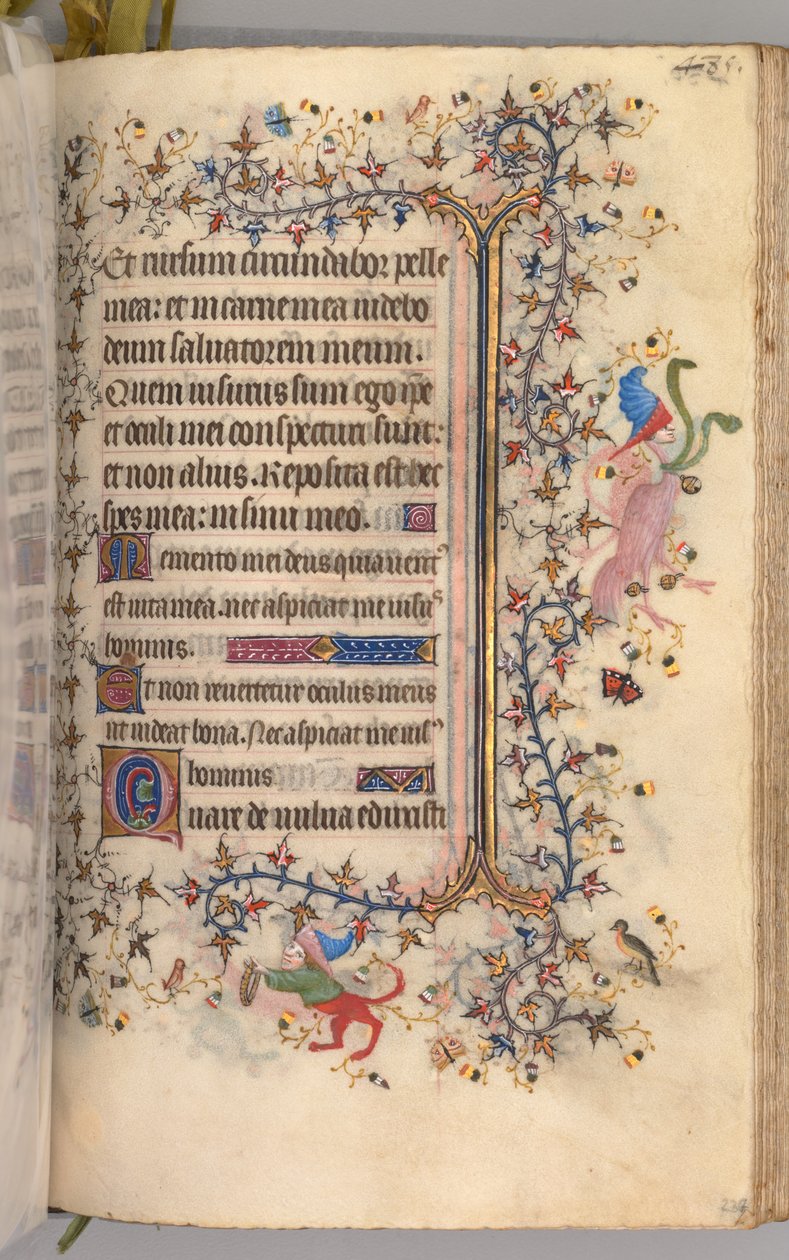 Et rursum circundabor pelle
mea: et in carne mea uidebo
deum saluatorem meum.
Quem uisurus sum ego ip̄e
et oculi mei conspecturi sunt:
et non alius. Reposita est hec
spes mea: in sinu meo.
Memento mei deus quia uent᾽
est uita mea. nec aspiciat me uisu᾽
hominis.
Et non reuertetur oculus meus
ut uideat bona. Nec aspiciat me uis᾽
hominis
Quare de uulua eduxisti